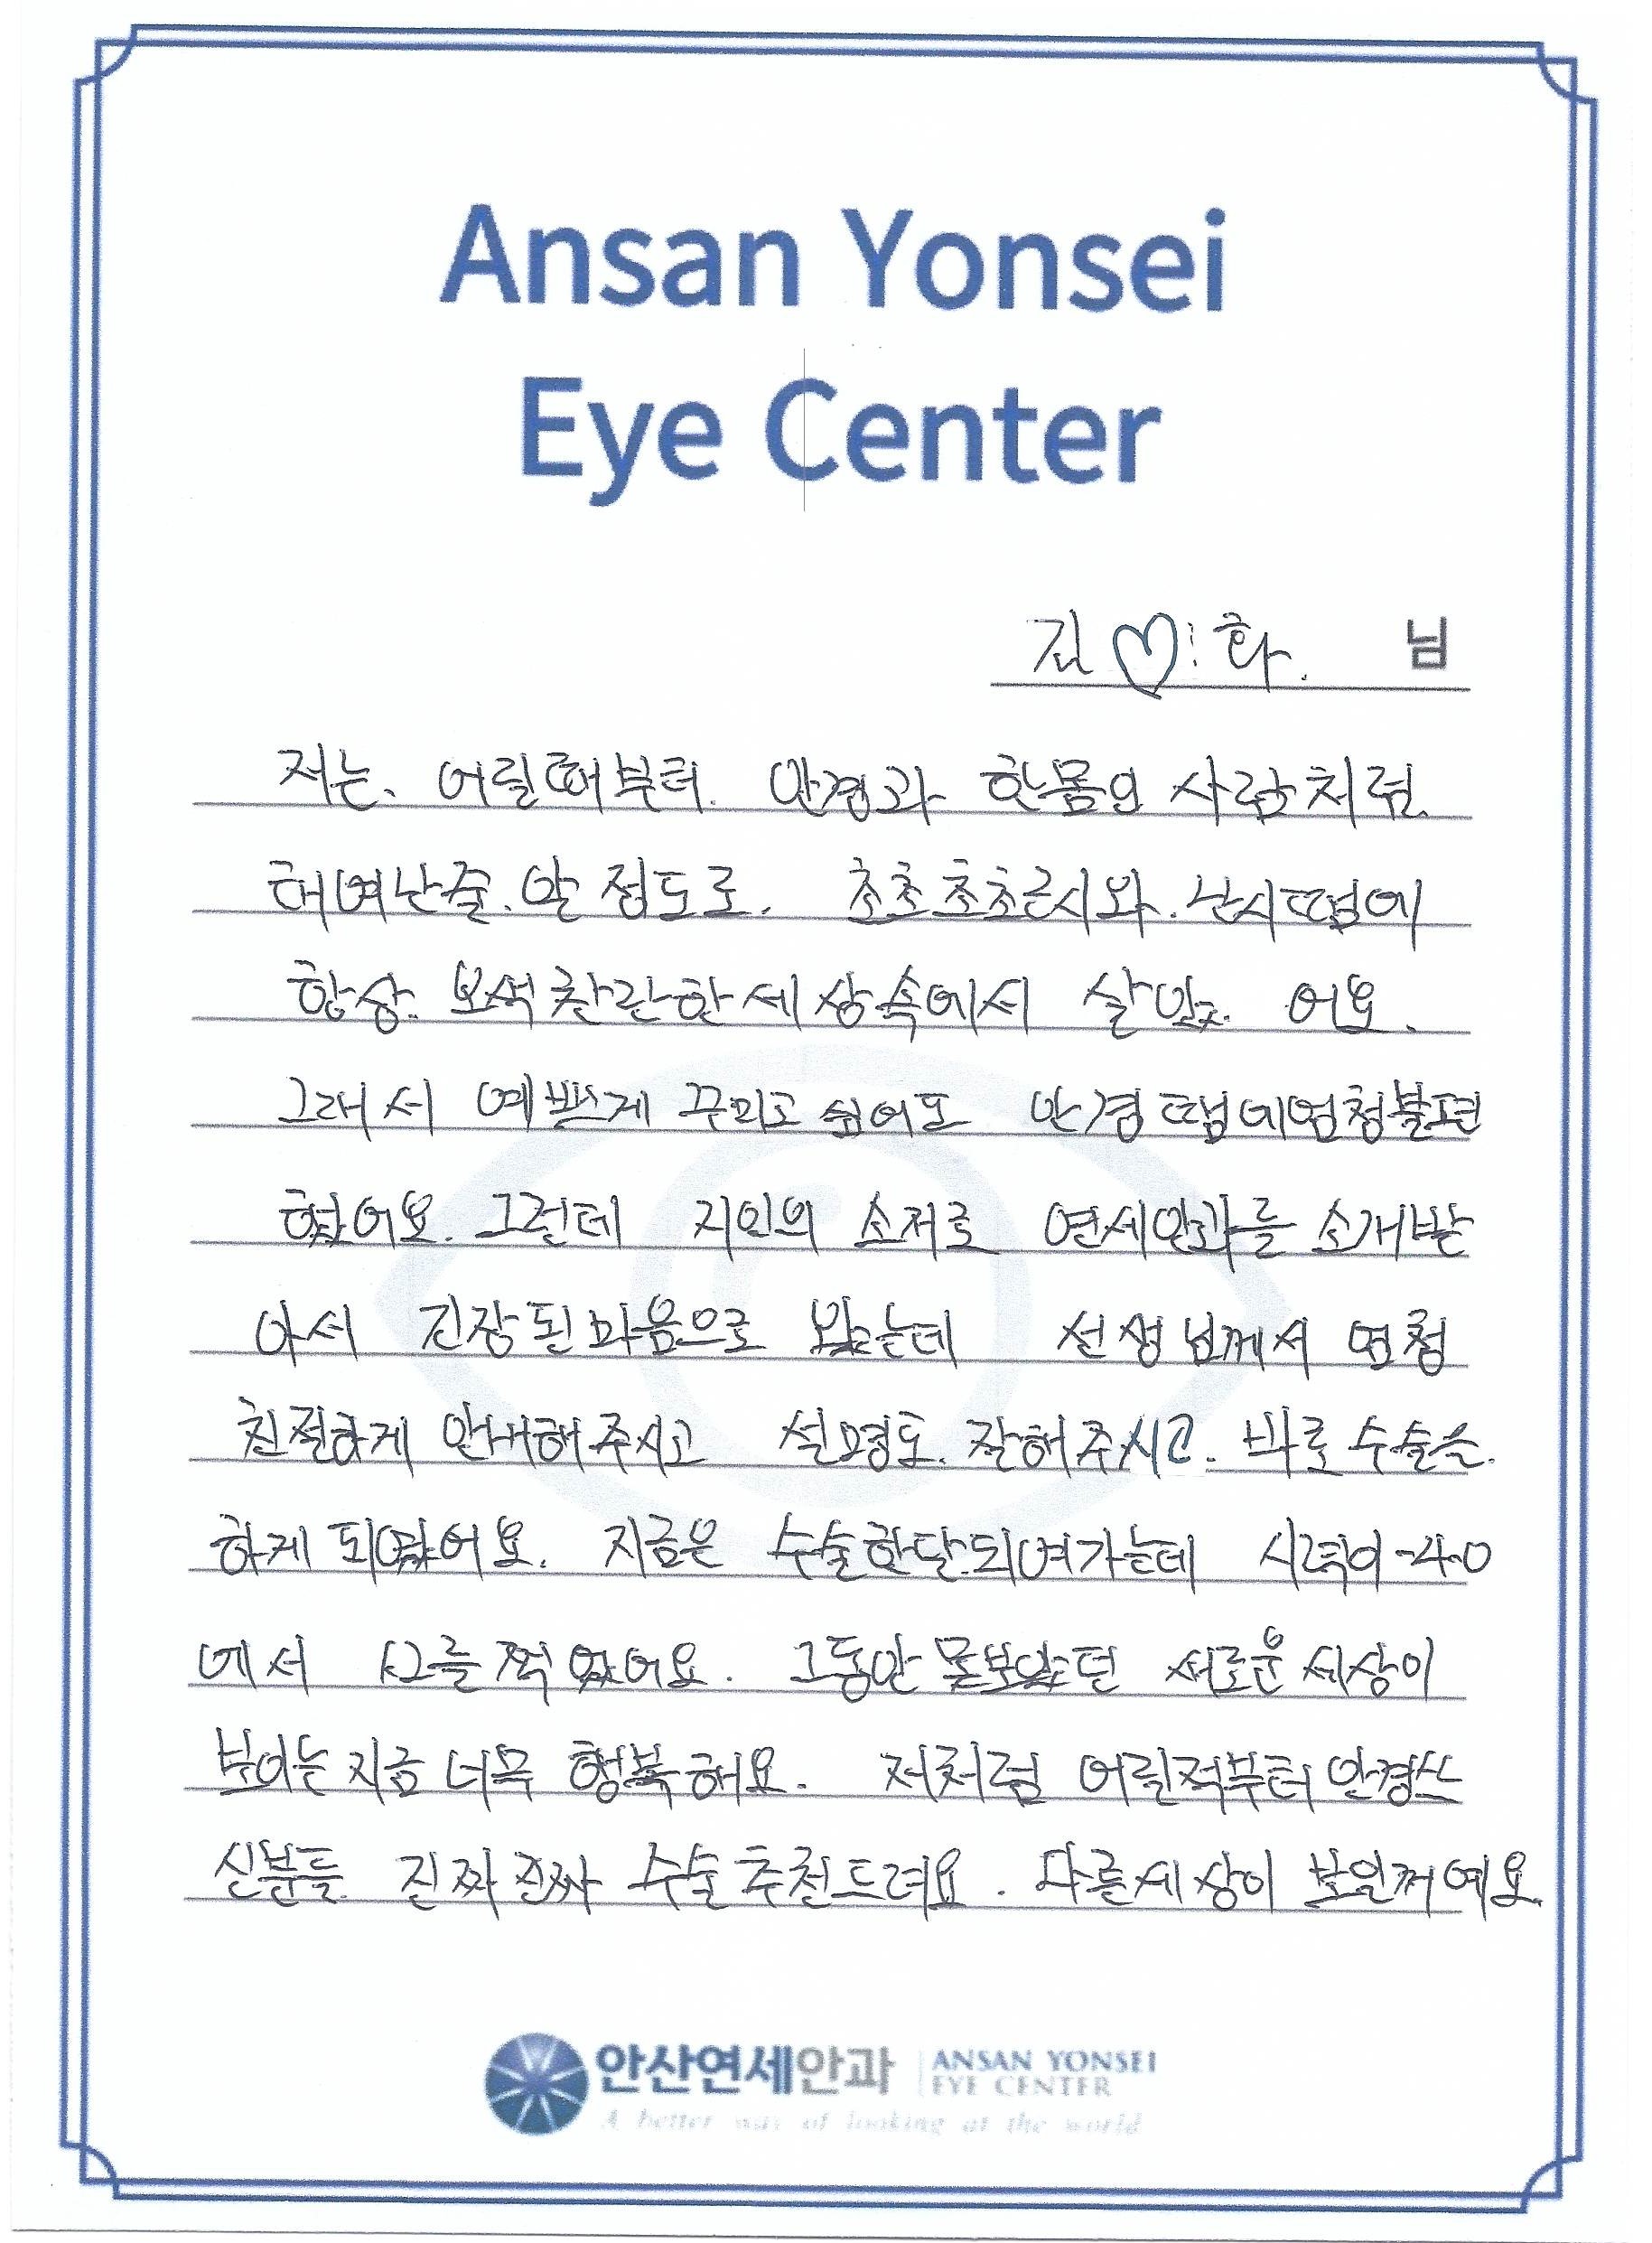 Ansan Yonsei
Eye Center
김♡화. 님
저는. 어릴때부터. 안경과 한몸인 사람처럼.
태여난줄.알 정도로. 초초초초근시와.난시땜에
항상. 보석찬란한세상속에서 살았. 어요.
그래서 예쁘게 꾸미고 싶어도 안경땜에엄청불편
했어요. 그런데 지인의 소개로 연세안과를 소개받
아서 긴장된마음으로 왔는데 선생님께서 엄청
친절하게 안내해주시고 설명도.잘해주시고. 바로수술을.
하게되였어요. 지금은 수술한달되여가는데 시력이-4.0
에서 시고를찍었어요. 그동안못보았던 새로운세상이
보이는지금너무 행복해요. 저처럼 어릴적부터안경쓰
신분들. 진짜진짜 수술추천드려요. 다른세상이 보일꺼예요.
안산연세안과 ANSAN YONSEI
EYE CENTER
A better way of looking at the world